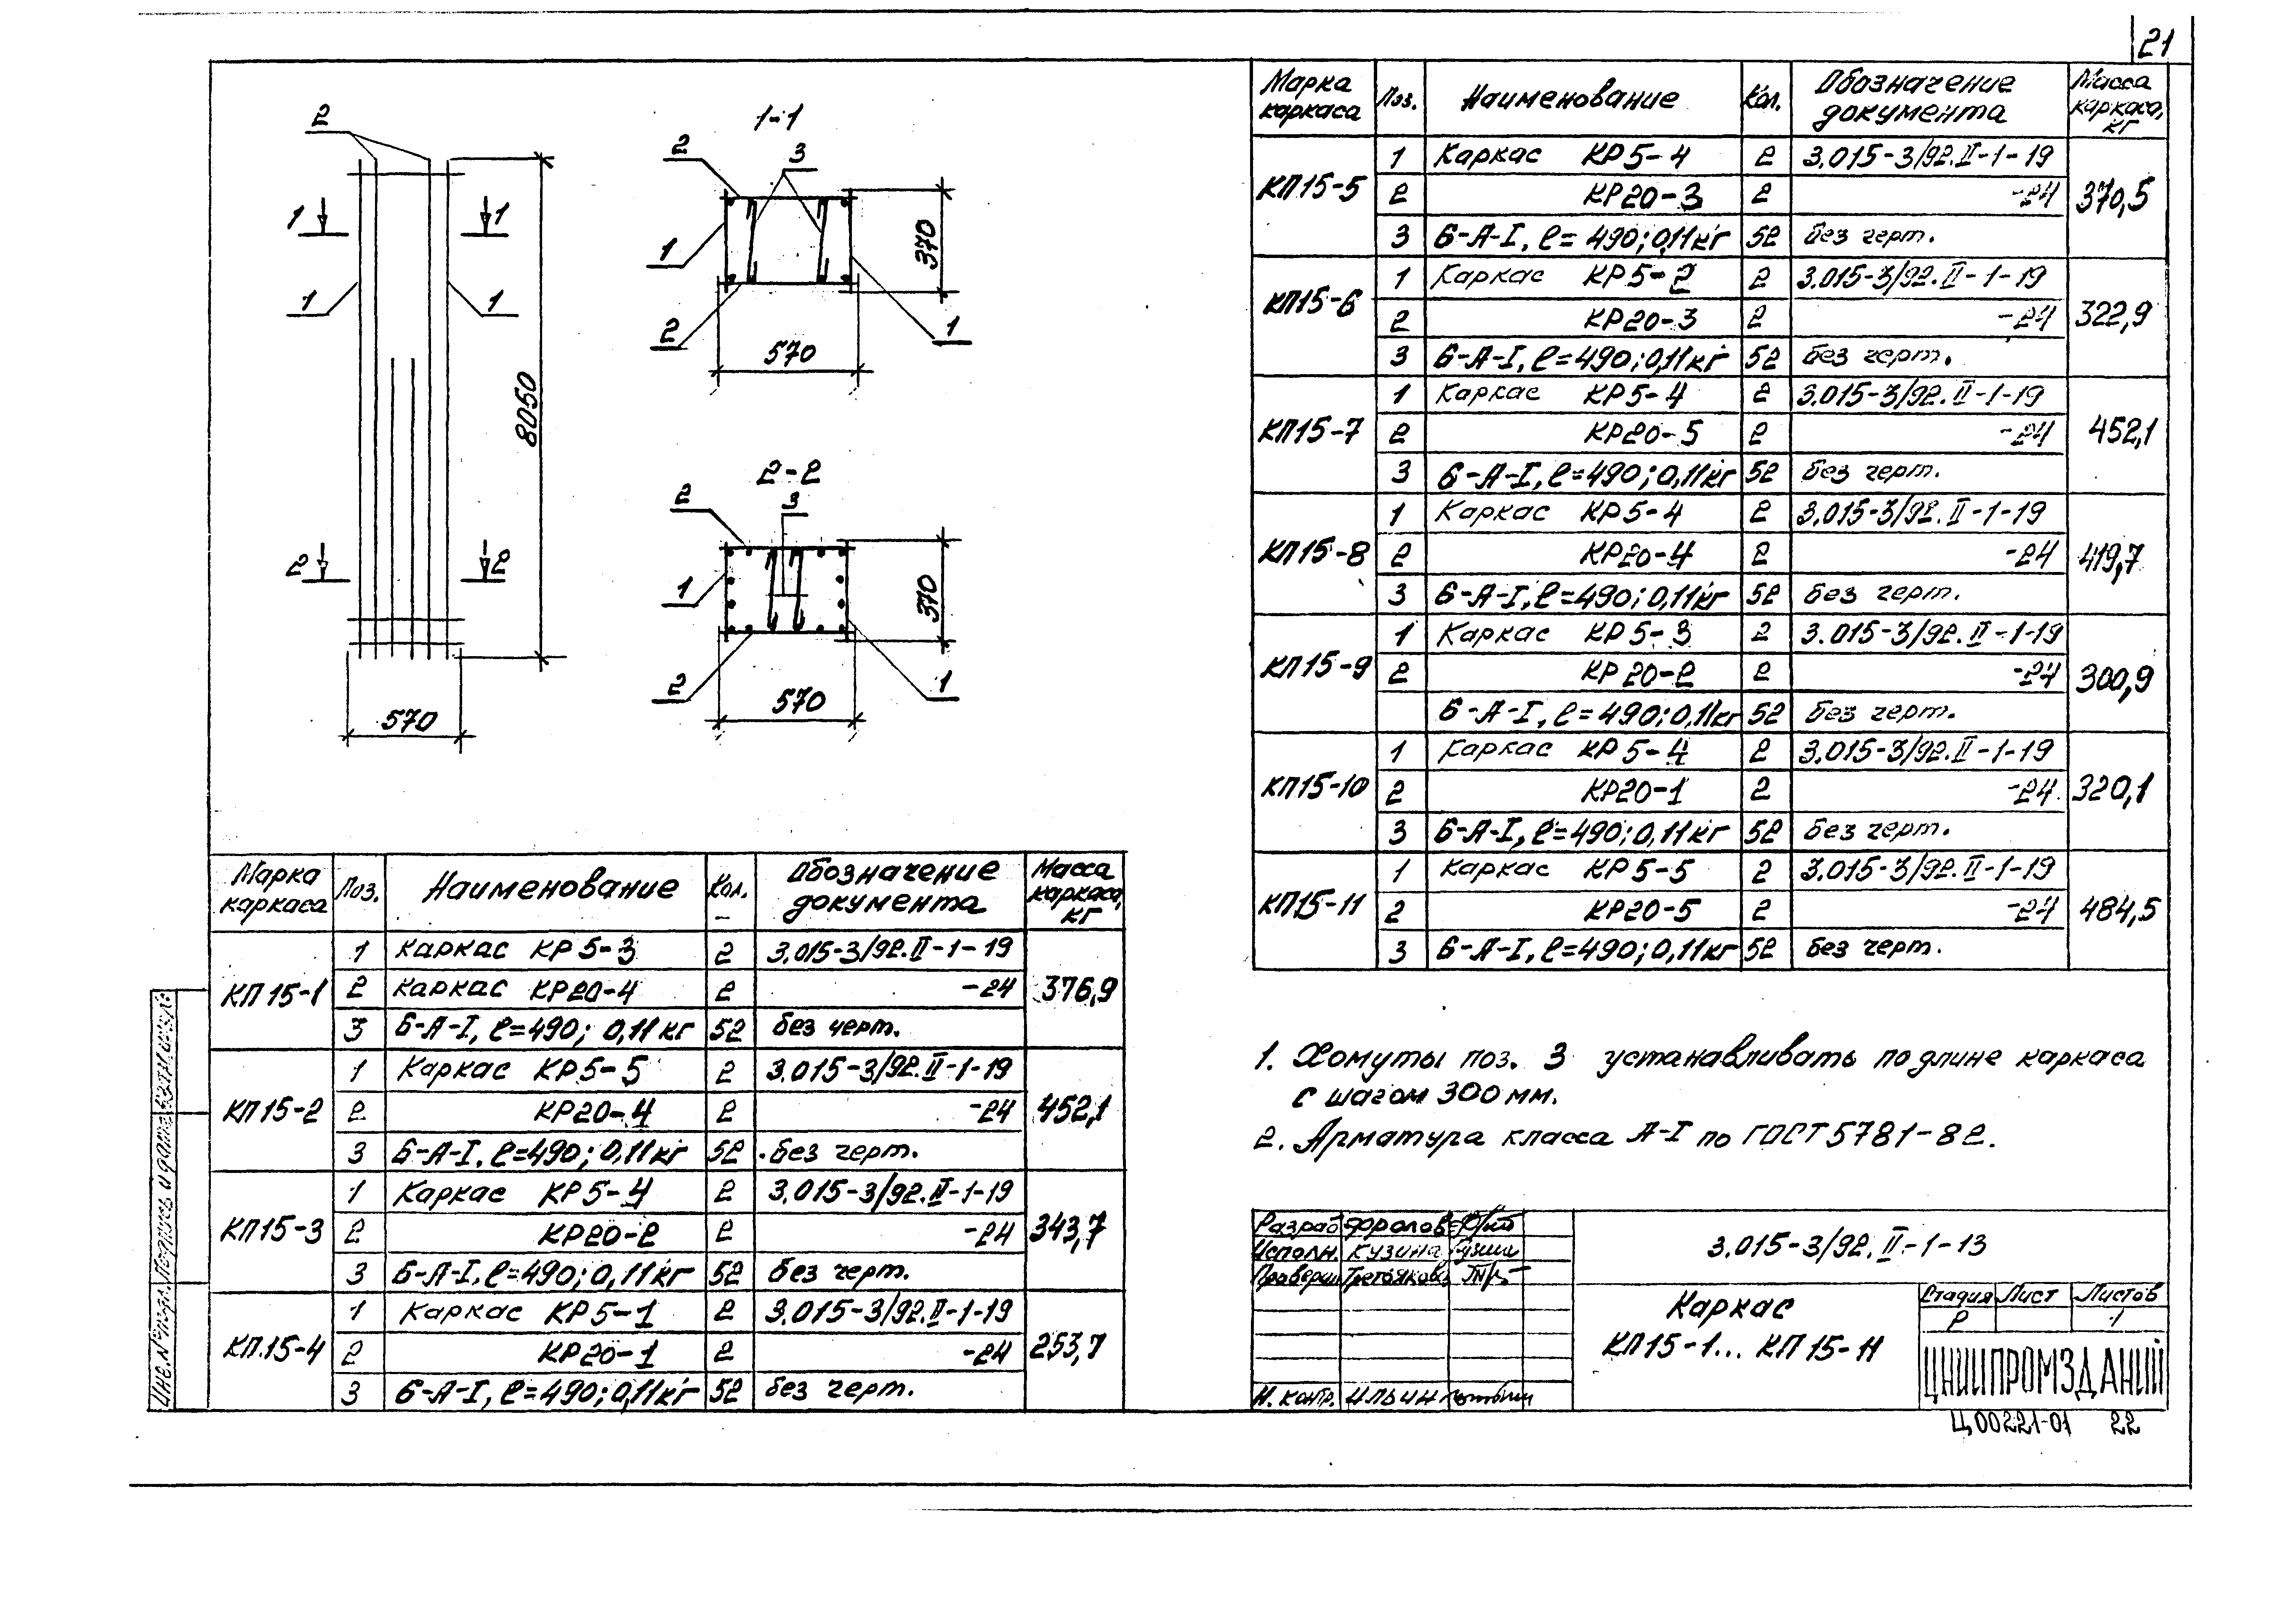 21
2
1 1
1 1
8050
2 2
570
1-1
2 3
1
370
2 1
570
2-2
2 3
1
370
2 1
570
Марка каркаса Поз. Наименование Кол. Обозначение документа Масса каркаса, кг
КП15-1 1 Каркас КР5-3 2 3.015-3/92.II-1-19 376,9
2 Каркас КР20-4 2 -24
3 6-А-I, ℓ=490; 0,11кг 52 без черт.
КП15-2 1 Каркас КР5-5 2 3.015-3/92.II-1-19 452,1
2 КР20-4 2 -24
3 6-А-I, ℓ=490; 0,11кг 52 без черт.
КП15-3 1 Каркас КР5-4 2 3.015-3/92.II-1-19 343,7
2 КР20-2 2 -24
3 6-А-I, ℓ=490; 0,11кг 52 без черт.
КП.15-4 1 Каркас КР5-1 2 3.015-3/92.II-1-19 253,7
2 КР20-1 2 -24
3 6-А-I, ℓ=490; 0,11кг 52 без черт.
Марка каркаса Поз. Наименование Кол. Обозначение документа Масса каркаса, кг
КП15-5 1 Каркас КР5-4 2 3.015-3/92.II-1-19 370,5
2 КР20-3 2 -24
3 6-А-I, ℓ=490; 0,11кг 52 без черт.
КП15-6 1 Каркас КР5-2 2 3.015-3/92.II-1-19 322,9
2 КР20-3 2 -24
3 6-А-I, ℓ=490; 0,11кг 52 без черт.
КП15-7 1 Каркас КР5-4 2 3.015-3/92.II-1-19 452,1
2 КР20-5 2 -24
3 6-А-I, ℓ=490; 0,11кг 52 без черт.
КП15-8 1 Каркас КР5-4 2 3.015-3/92.II-1-19 419,7
2 КР20-4 2 -24
3 6-А-I, ℓ=490; 0,11кг 52 без черт.
КП15-9 1 Каркас КР5-3 2 3.015-3/92.II-1-19 300,9
2 КР20-2 2 -24
6-А-I, ℓ=490; 0,11кг 52 без черт.
КП15-10 1 Каркас КР5-4 2 3.015-3/92.II-1-19 320,1
2 КР20-1 2 -24
3 6-А-I, ℓ=490; 0,11кг 52 без черт.
КП15-11 1 Каркас КР5-5 2 3.015-3/92.II-1-19 484,5
2 КР20-5 2 -24
3 6-А-I, ℓ=490; 0,11кг 52 без черт.
1. Хомуты поз. 3 устанавливать по длине каркаса
с шагом 300 мм.
2. Арматура класса А-I по ГОСТ 5781-82.
Разраб Фролов
Исполн. Кузина
Провери Третьякова
Н. контр. Ильин
3.015-3/92.II-1-13
Каркас
КП15-1... КП15-11
Стадия Лист Листов
Р 1
ЦНИИПРОМЗДАНИЙ
Ц00221-01 22
Инв. № подл. Подпись и дата